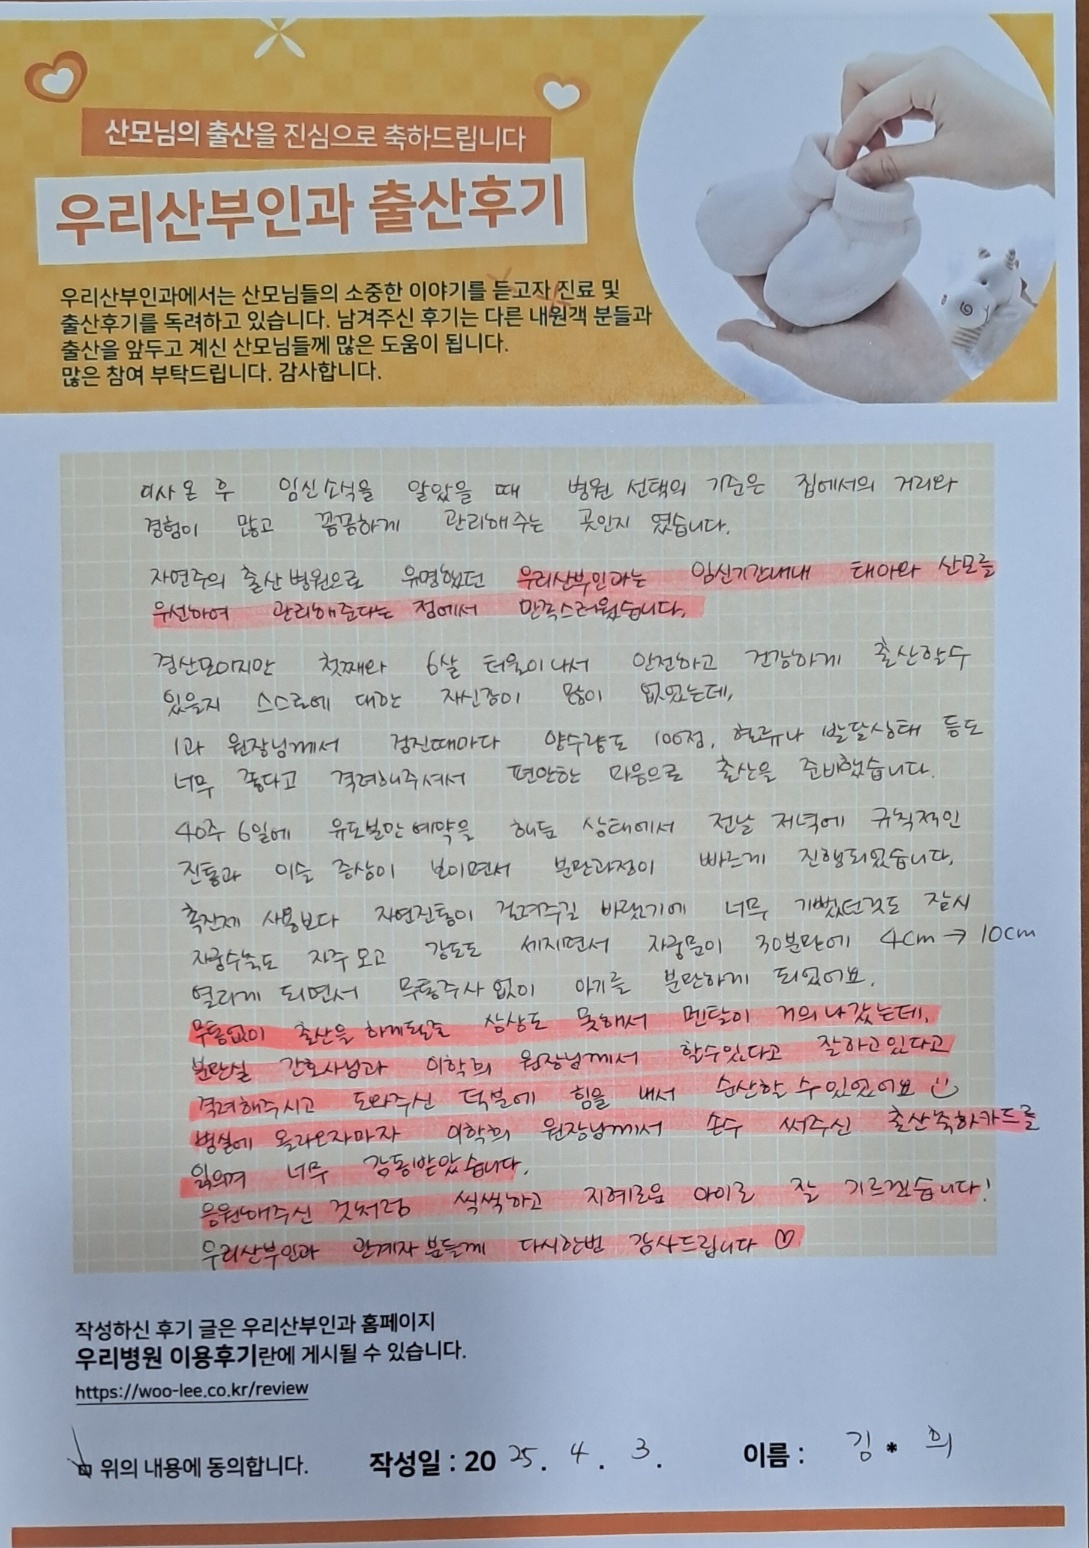 산모님의 출산을 진심으로 축하드립니다
우리산부인과 출산후기
우리산부인과에서는 산모님들의 소중한 이야기를 듣고자 진료 및
출산후기를 독려하고 있습니다. 남겨주신 후기는 다른 내원객 분들과
출산을 앞두고 계신 산모님들께 많은 도움이 됩니다.
많은 참여 부탁드립니다. 감사합니다.
이사 온 후 임신소식을 알았을 때 병원 선택의 기준은 집에서의 거리와
경험이 많고 꼼꼼하게 관리해주는 곳인지 였습니다.
자연주의 출산병원으로 유명했던 우리산부인과는 임신기간내내 태아와 산모를
우선하여 관리해준다는 점에서 만족스러웠습니다.
경산모이지만 첫째와 6살 터울이나서 안전하고 건강하게 출산할수
있을지 스스로에 대한 자신감이 많이 없었는데,
1과 원장님께서 검진때마다 양수량도 100점, 혈류나 발달상태 등도
너무 좋다고 격려해주셔서 편안한 마음으로 출산을 준비했습니다.
40주 6일에 유도분만 예약을 해둔 상태에서 전날 저녁에 규칙적인
진통과 이슬 증상이 보이면서 분만과정이 빠르게 진행되었습니다.
촉진제 사용보다 자연진통이 걸려주길 바랬기에 너무 기뻤던것도 잠시
자궁수축도 자주 오고 강도도 세지면서 자궁문이 30분만에 4cm → 10cm
열리게 되면서 무통주사 없이 아기를 분만하게 되었어요.
무통없이 출산을 하게될줄 상상도 못해서 멘탈이 거의 나갔는데,
분만실 간호사님과 이학희 원장님께서 할수있다고 잘하고있다고
격려해주시고 도와주신 덕분에 힘을 내서 순산할 수 있었어요
병실에 올라오자마자 이학희 원장님께서 손수 써주신 출산축하카드를
읽으며 너무 감동받았습니다.
응원해주신 것처럼 씩씩하고 지혜로운 아이로 잘 기르겠습니다!
우리산부인과 관계자 분들께 다시한번 감사드립니다 ♡
작성하신 후기 글은 우리산부인과 홈페이지
우리병원 이용후기란에 게시될 수 있습니다.
https://woo-lee.co.kr/review
위의 내용에 동의합니다. 작성일 : 20 25. 4. 3. 이름 : 김 * 희